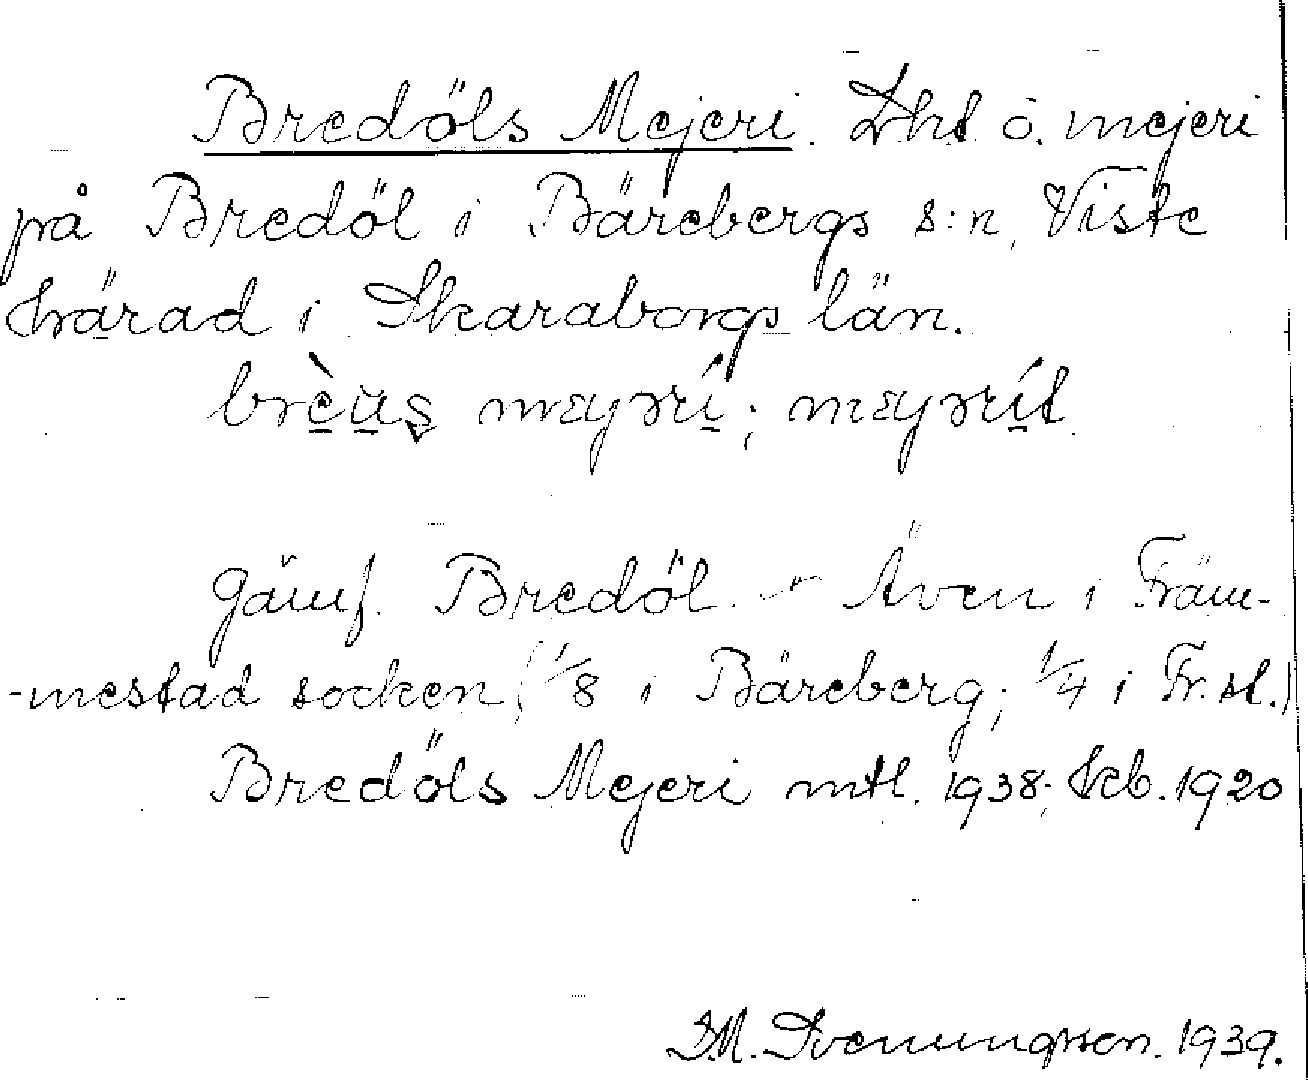 Bredöls Mejeri. Lht o. mejeri
på Bredöl i Bärebergs s:n, Viste
härad i Skaraborgs län.
mɛyərí; mɛyərít
Jämf. Bredöl. - Även i Främ-
-mestad socken (1/8 i Bäreberg; 1/4 i Fr. st.)
Bredöls Mejeri mtl. 1938; Kcb. 1920
D.M. Svenungsson. 1939.